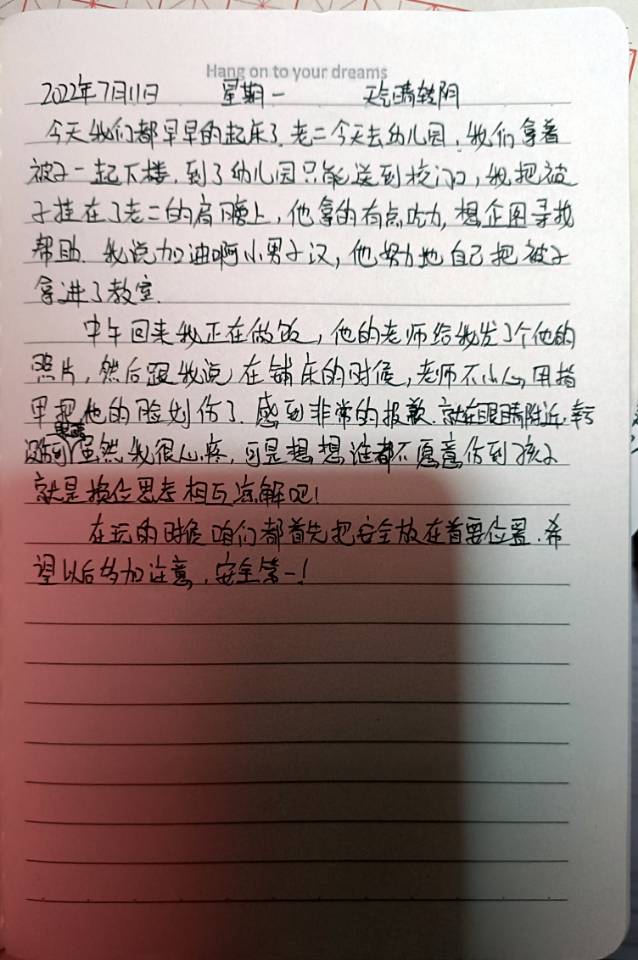 Hang on to your dreams
2022年7月11日 星期一 天气晴转阴
今天我们都早早的起床了.老二今天去幼儿园,我们拿着
被子一起下楼.到了幼儿园只能送到校门口,我把被
子挂在了老二的肩膀上,他拿的有点吃力,想企图寻找
帮助.我说加油啊小男子汉,他努力地自己把被子
拿进了教室.
中午回来我正在做饭,他的老师给我发了个他的
照片,然后跟我说在铺床的时候,老师不小心用指
甲把他的脸划伤了.感到非常的报歉.就在眼睛附近.幸亏
虽然我很心疼,可是想想谁都不愿意伤到孩子
就是换位思考相互谅解吧!
在玩的时候咱们都首先把安全放在首要位置.希
望以后多加注意.安全第一!